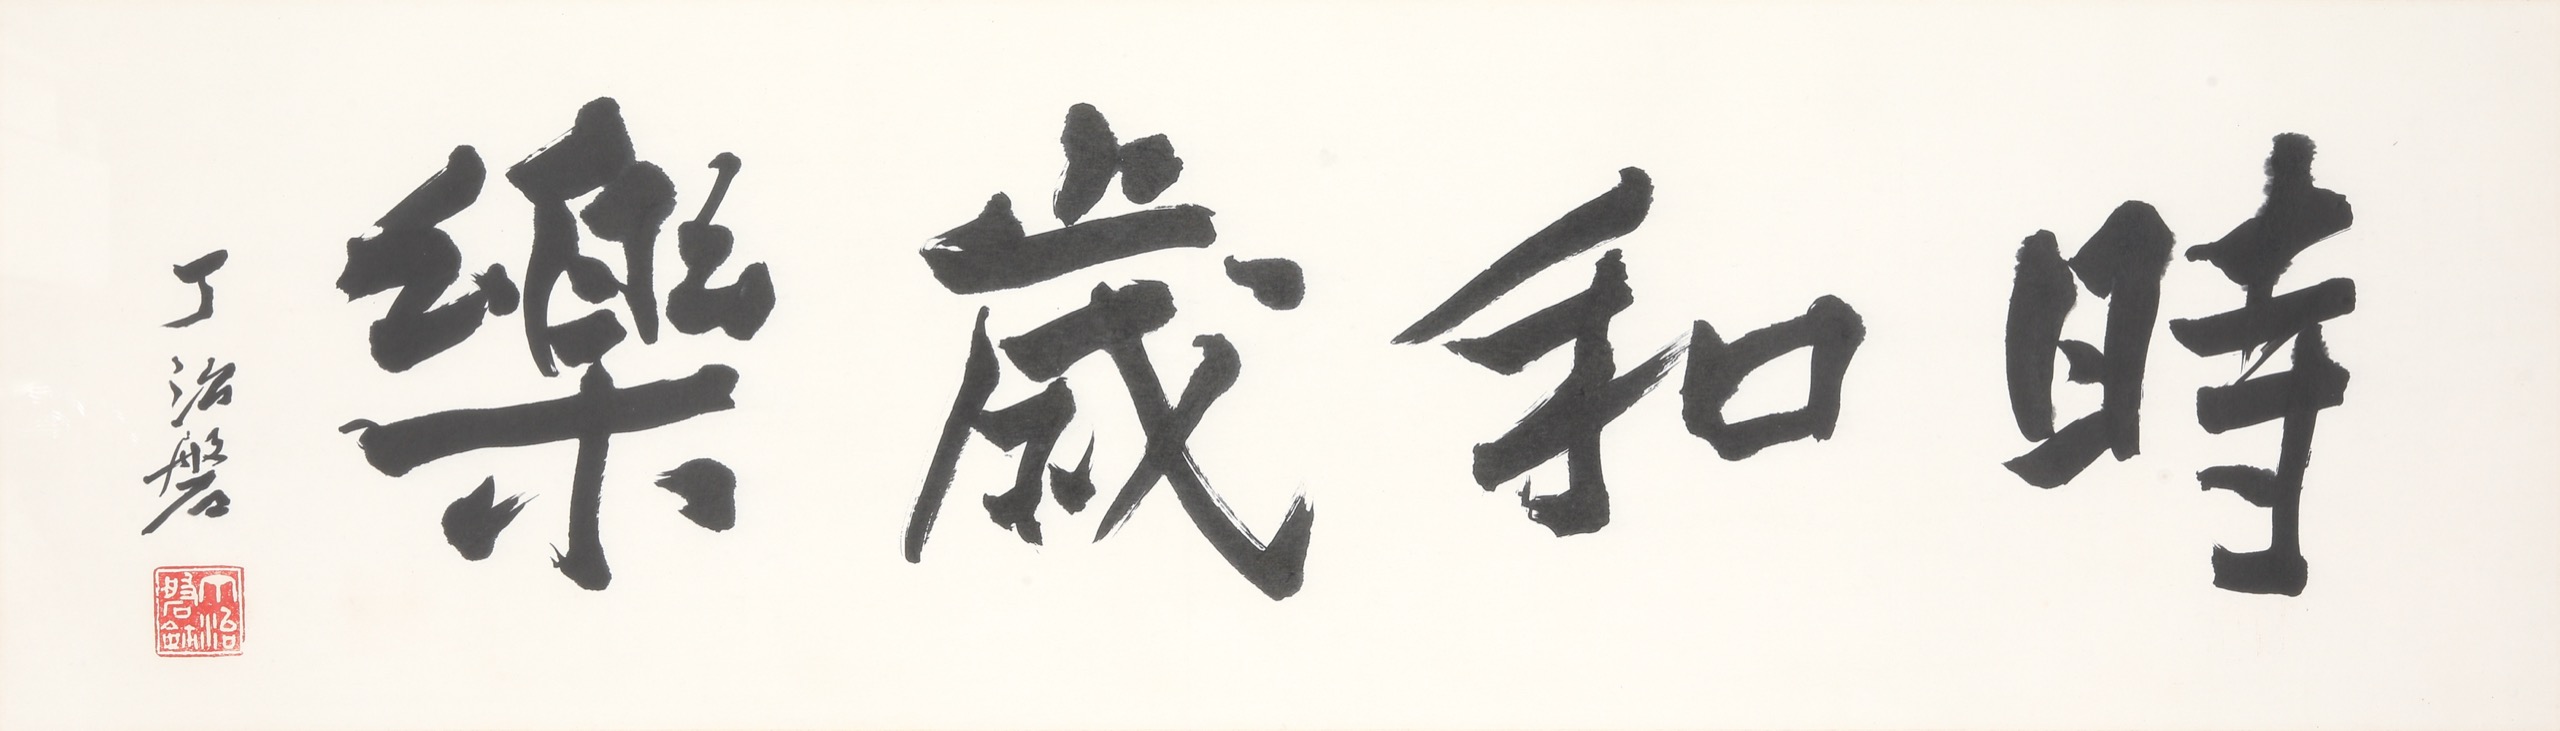 時和歲樂
丁治磐
丁治磐鉥